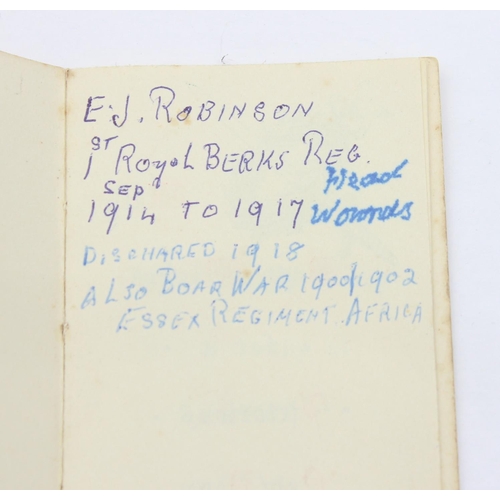 E.J. ROBINSON
1ST Royal BERKS REG.
SEP
1914 TO 1917 Head Wounds
DISCHARED 1918
ALSO BOAR WAR 1900/1902
ESSEX REGIMENT. AFRICA